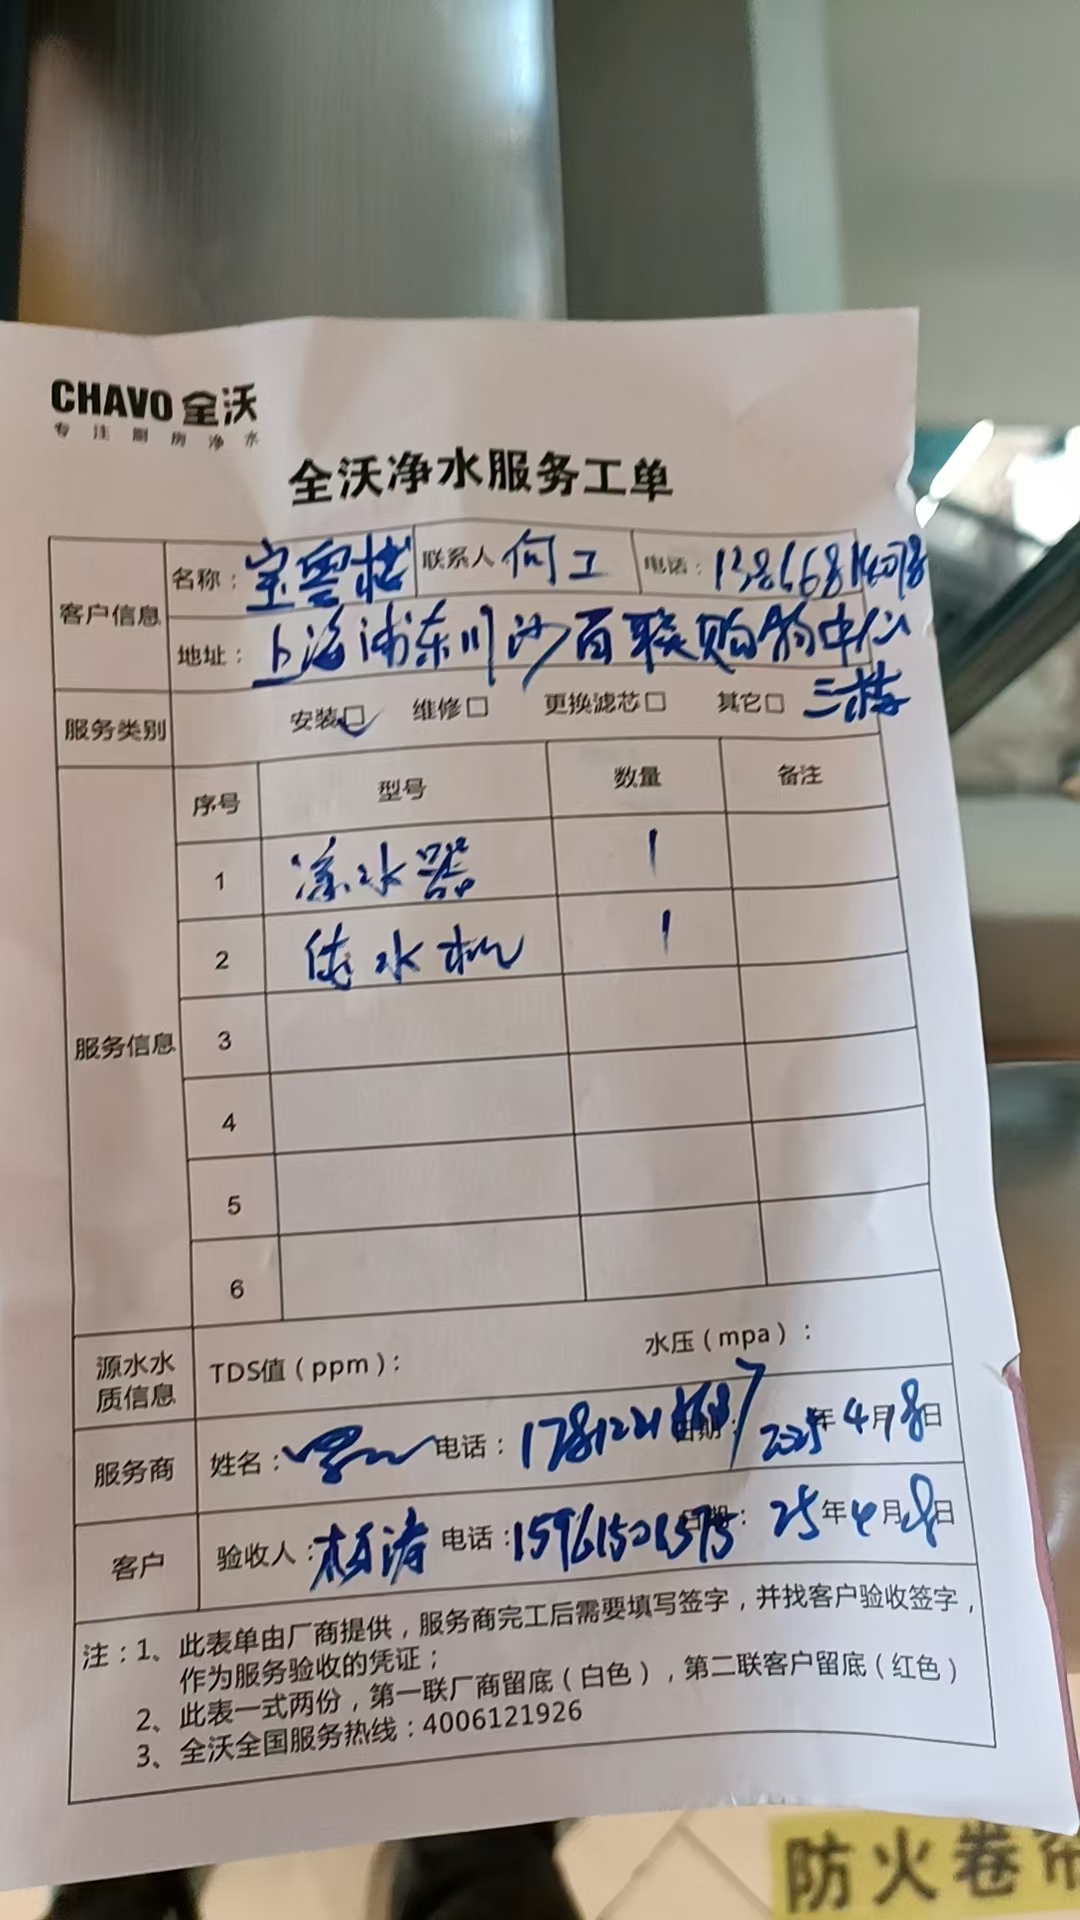 CHAVO 全沃
专注厨房净水
全沃净水服务工单
客户信息 名称： 联系人 何工 电话：
地址：上海浦东川沙百联购物中心
三楼
服务类别 安装☑ 维修□ 更换滤芯□ 其它□
服务信息 序号 型号 数量 备注
1 净水器 1
2 饮水机 1
3
4
5
6
源水水质信息 TDS值（ppm）： 水压（mpa）：
服务商 姓名： 电话： 日期： 2025年4月8日
客户 验收人： 电话： 日期： 25年4月8日
注：1、此表单由厂商提供，服务商完工后需要填写签字，并找客户验收签字，
作为服务验收的凭证；
2、此表一式两份，第一联厂商留底（白色），第二联客户留底（红色）
3、全沃全国服务热线：4006121926
防火卷帘